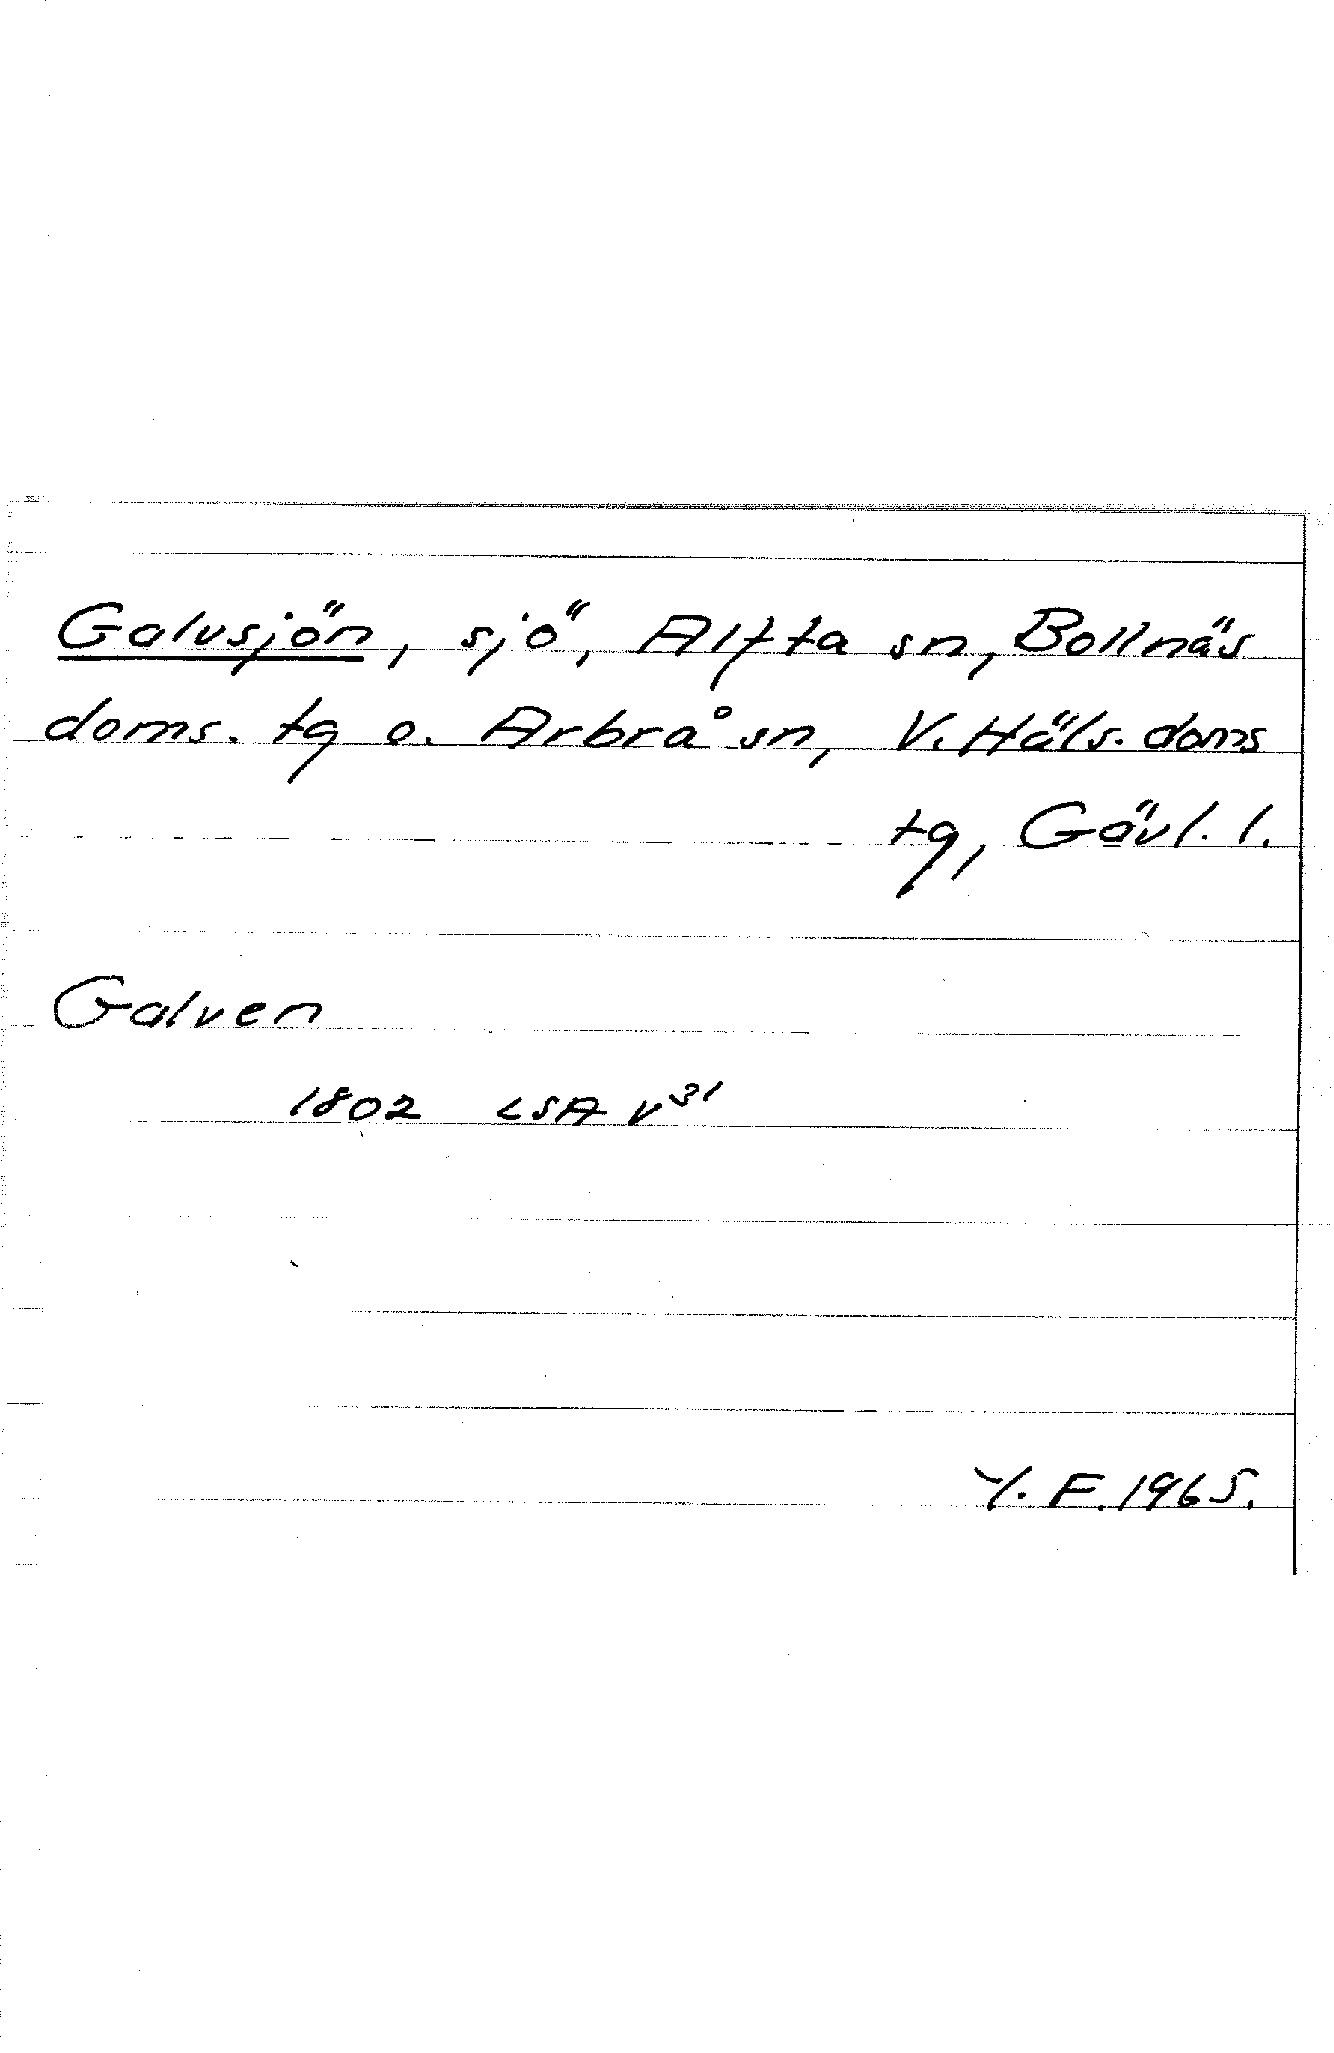 Galvsjön, sjö, Alfta sn, Bollnäs
doms. tg o. Arbrå sn, V. Häls. doms
tg, Gävl. l.
Galven
1802 LSA V³¹
Y. F. 1965.